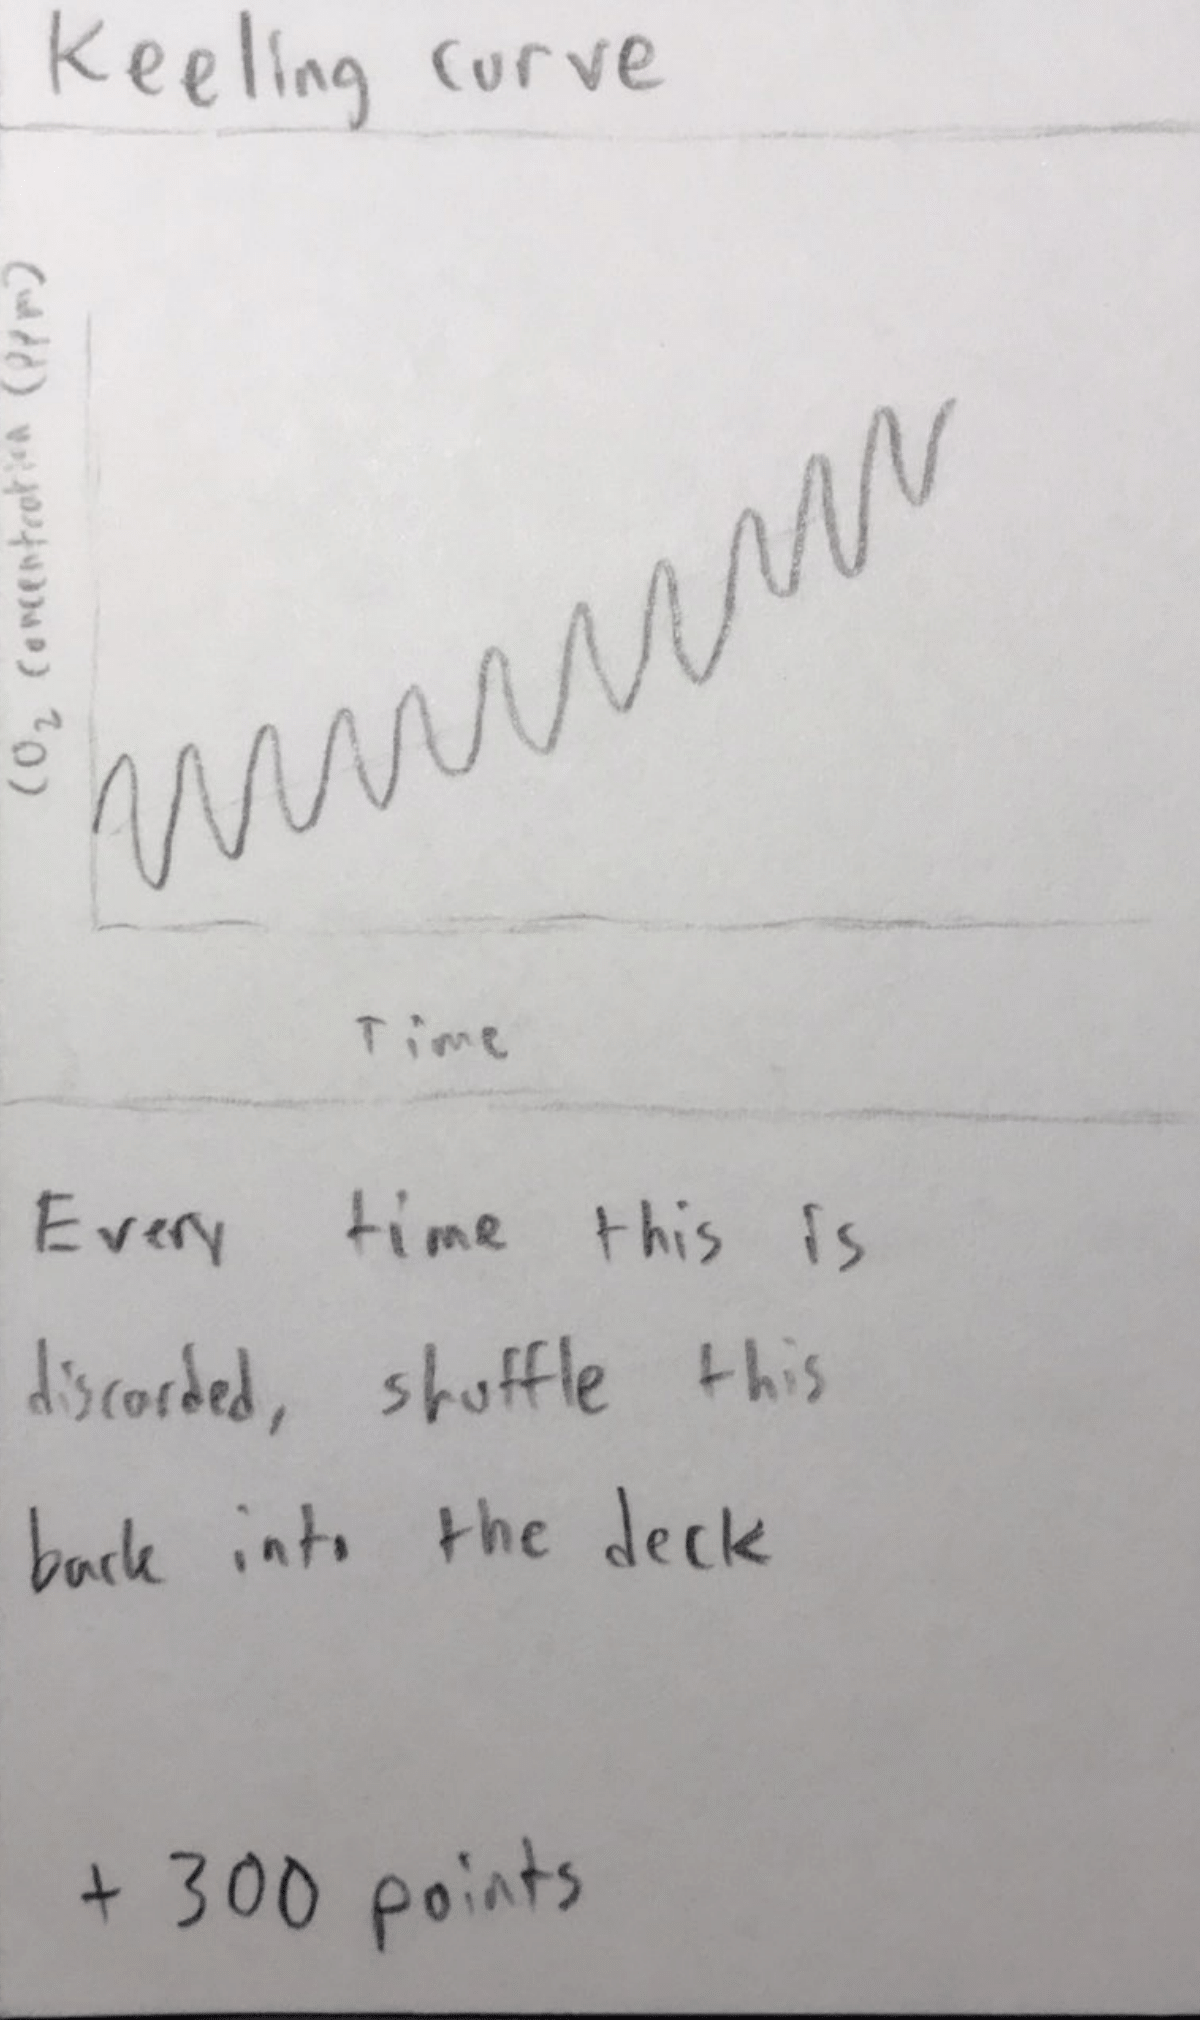 Keeling curve
CO2 concentration (PPm)
Time
Every time this is
discarded, shuffle this
back into the deck
+ 300 points